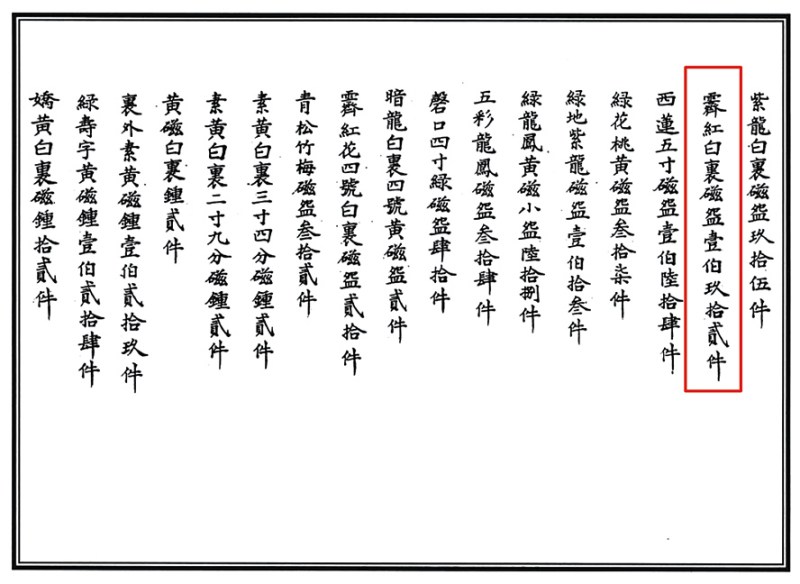 紫龍白裏磁盌玖拾伍件
霽紅白裏磁盌壹伯玖拾貳件
西蓮五寸磁盌壹伯陸拾肆件
綠花桃黃磁盌叁拾柒件
綠地紫龍磁盌壹伯拾叁件
綠龍鳳黃磁小盌陸拾捌件
五彩龍鳳磁盌叁拾肆件
磬口四寸綠磁盌肆拾件
暗龍白裏四號黃磁盌貳件
霽紅花四號白裏磁盌貳拾件
青松竹梅磁盌叁拾貳件
素黃白裏三寸四分磁鍾貳件
素黃白裏二寸九分磁鍾貳件
黃磁白裏鍾貳件
裏外素黃磁鍾壹伯貳拾玖件
綠壽字黃磁鍾壹伯貳拾肆件
嬌黃白裏磁鍾拾貳件